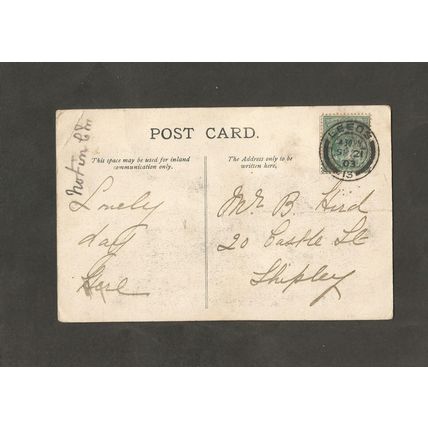 POST CARD.
This space may be used for inland
communication only.
The Address only to be
written here.
LEEDS
SP 21
03
13
Not in Cll
Lovely
day
Here
Mr B. Hird
20 Castle St
Shipley